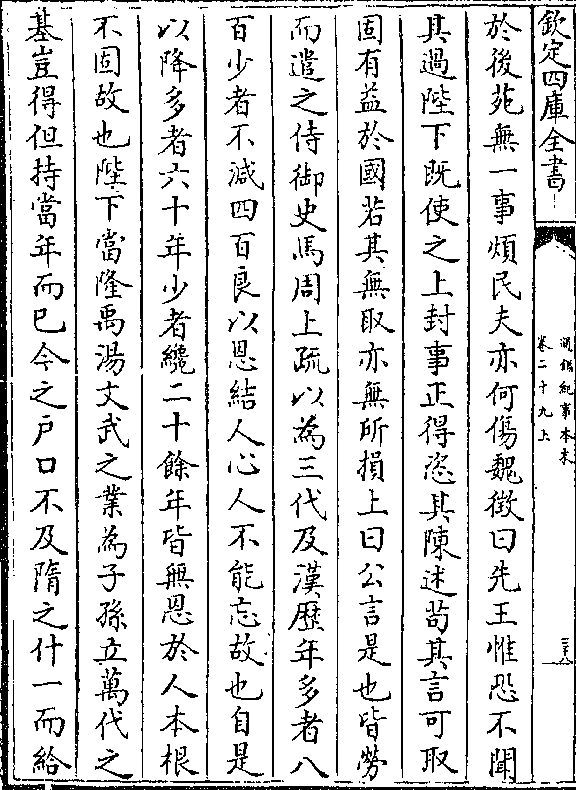 欽定四庫全書
通鑑紀事本末
卷二十九上
於後苑無一事煩民夫亦何傷魏徴曰先王惟恐不聞
其過陛下既使之上封事正得恣其陳述茍其言可取
固有益於國若其無取亦無所損上曰公言是也皆勞
而遣之侍御史馬周上疏以為三代及漢歴年多者八
百少者不減四百良以恩結人心人不能忘故也自是
以降多者六十年少者纔二十餘年皆無恩於人本根
不固故也陛下當隆禹湯文武之業為子孫立萬代之
基豈得但持當年而已今之戸口不及隋之什一而給